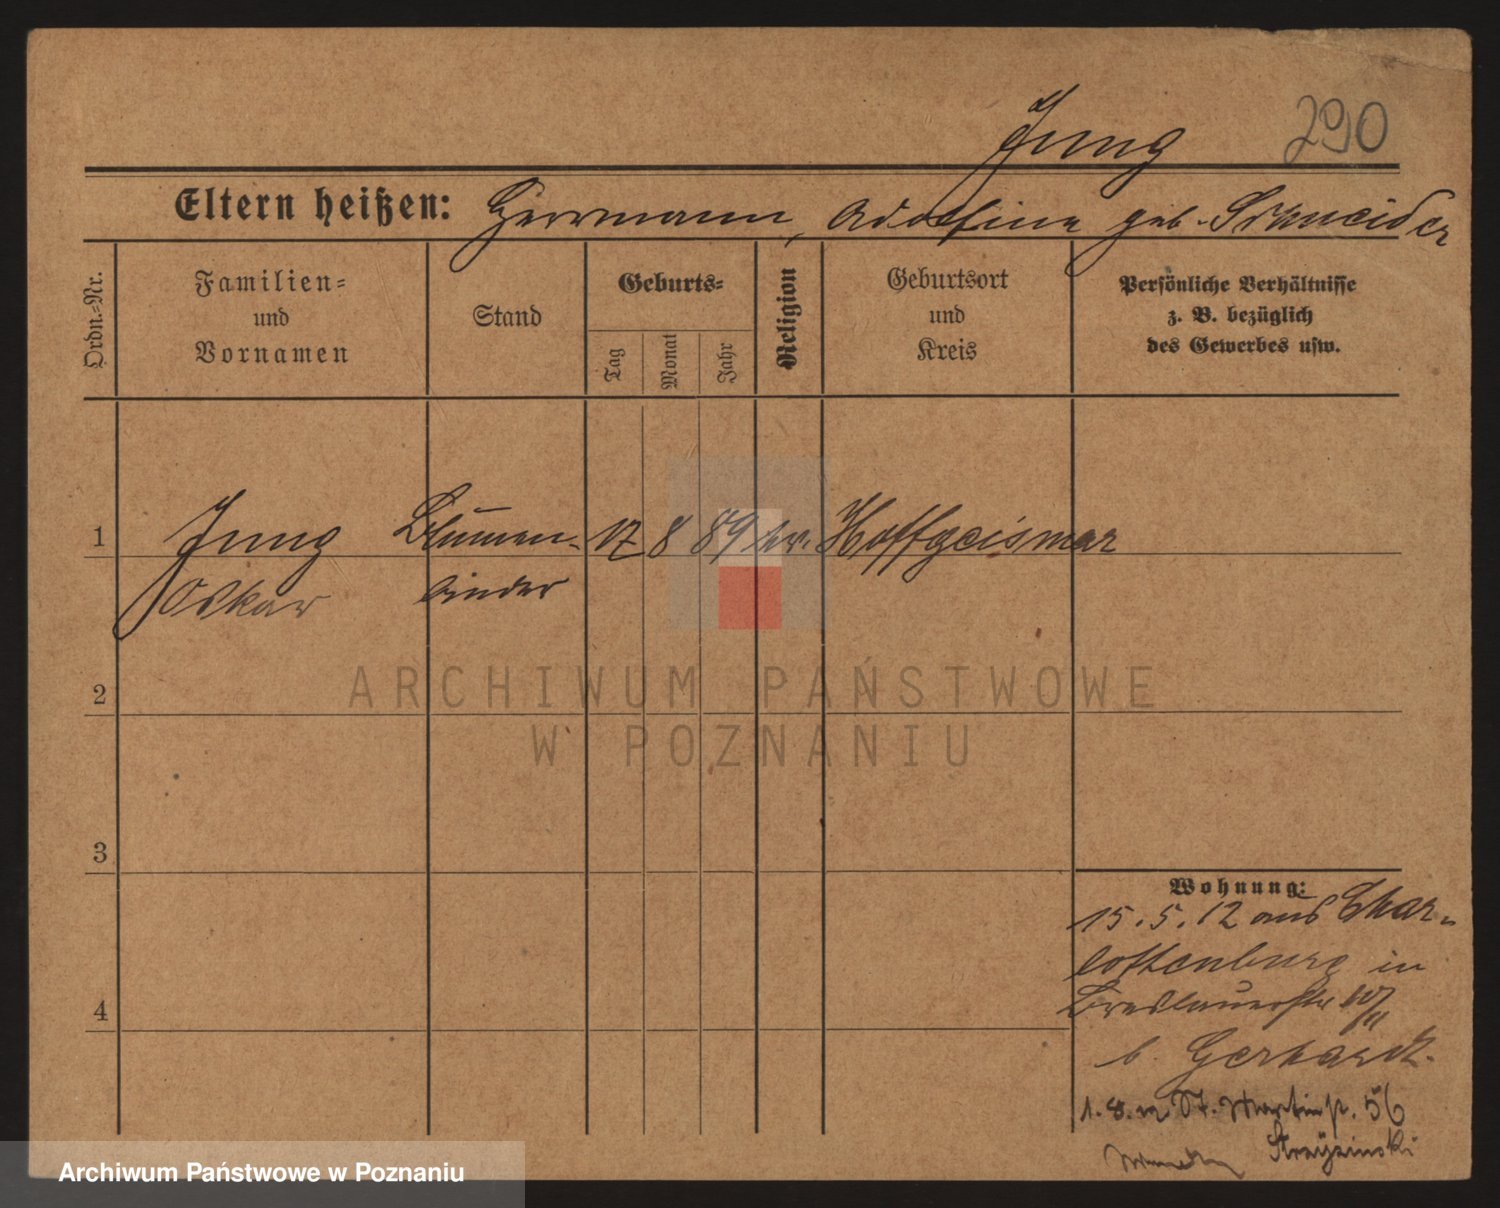 Jung 290
Eltern heißen: Herrmann, Adolfine geb. Schneider
Ordn.-Nr.
Familien-
und
Vornamen
Stand
Geburts-
Tag
Monat
Jahr
Religion
Geburtsort
und
Kreis
Persönliche Verhältnisse
z. B. bezüglich
des Gewerbes usw.
1 Jung Blumen- 17 8 89 ev. Hoffgeismar
Oskar binder
ARCHIWUM PAŃSTWOWE
2
W POZNANIU
3
Wohnung:
15.5.12 aus Char-
lottenburg in
4 Breslauerstr
b. Gerhardt.
1.8.12 St. Martinstr. 56
Archiwum Państwowe w Poznaniu